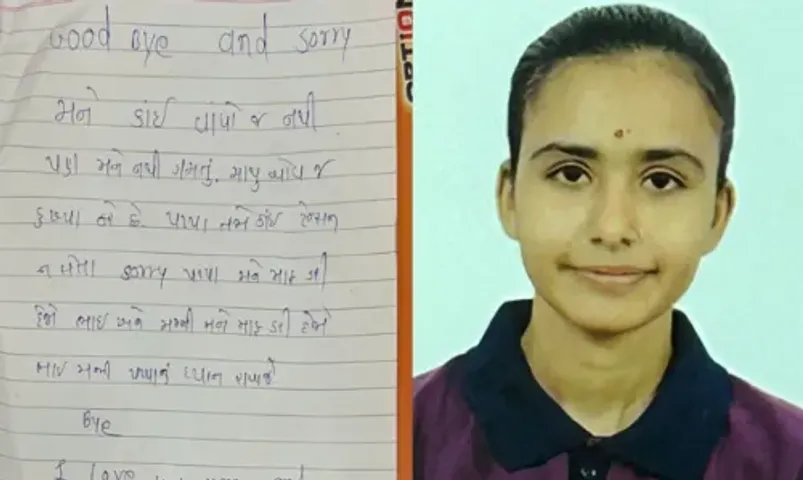 Good Bye and Sorry
મને કાંઈ વાંધો જ નથી
પણ મને નથી ગમતું. માથુ બોવ જ
દુખ્યા કરે છે. પપ્પા તમે કાંઈ ટેન્સન
ન લેતા sorry પપ્પા મને માફ કરી
દેજો ભાઇ અને મમ્મી મને માફ કરી દેજો
ભાઇ મમ્મી પપ્પાનું ધ્યાન રાખજે
Bye
I love
OPTION